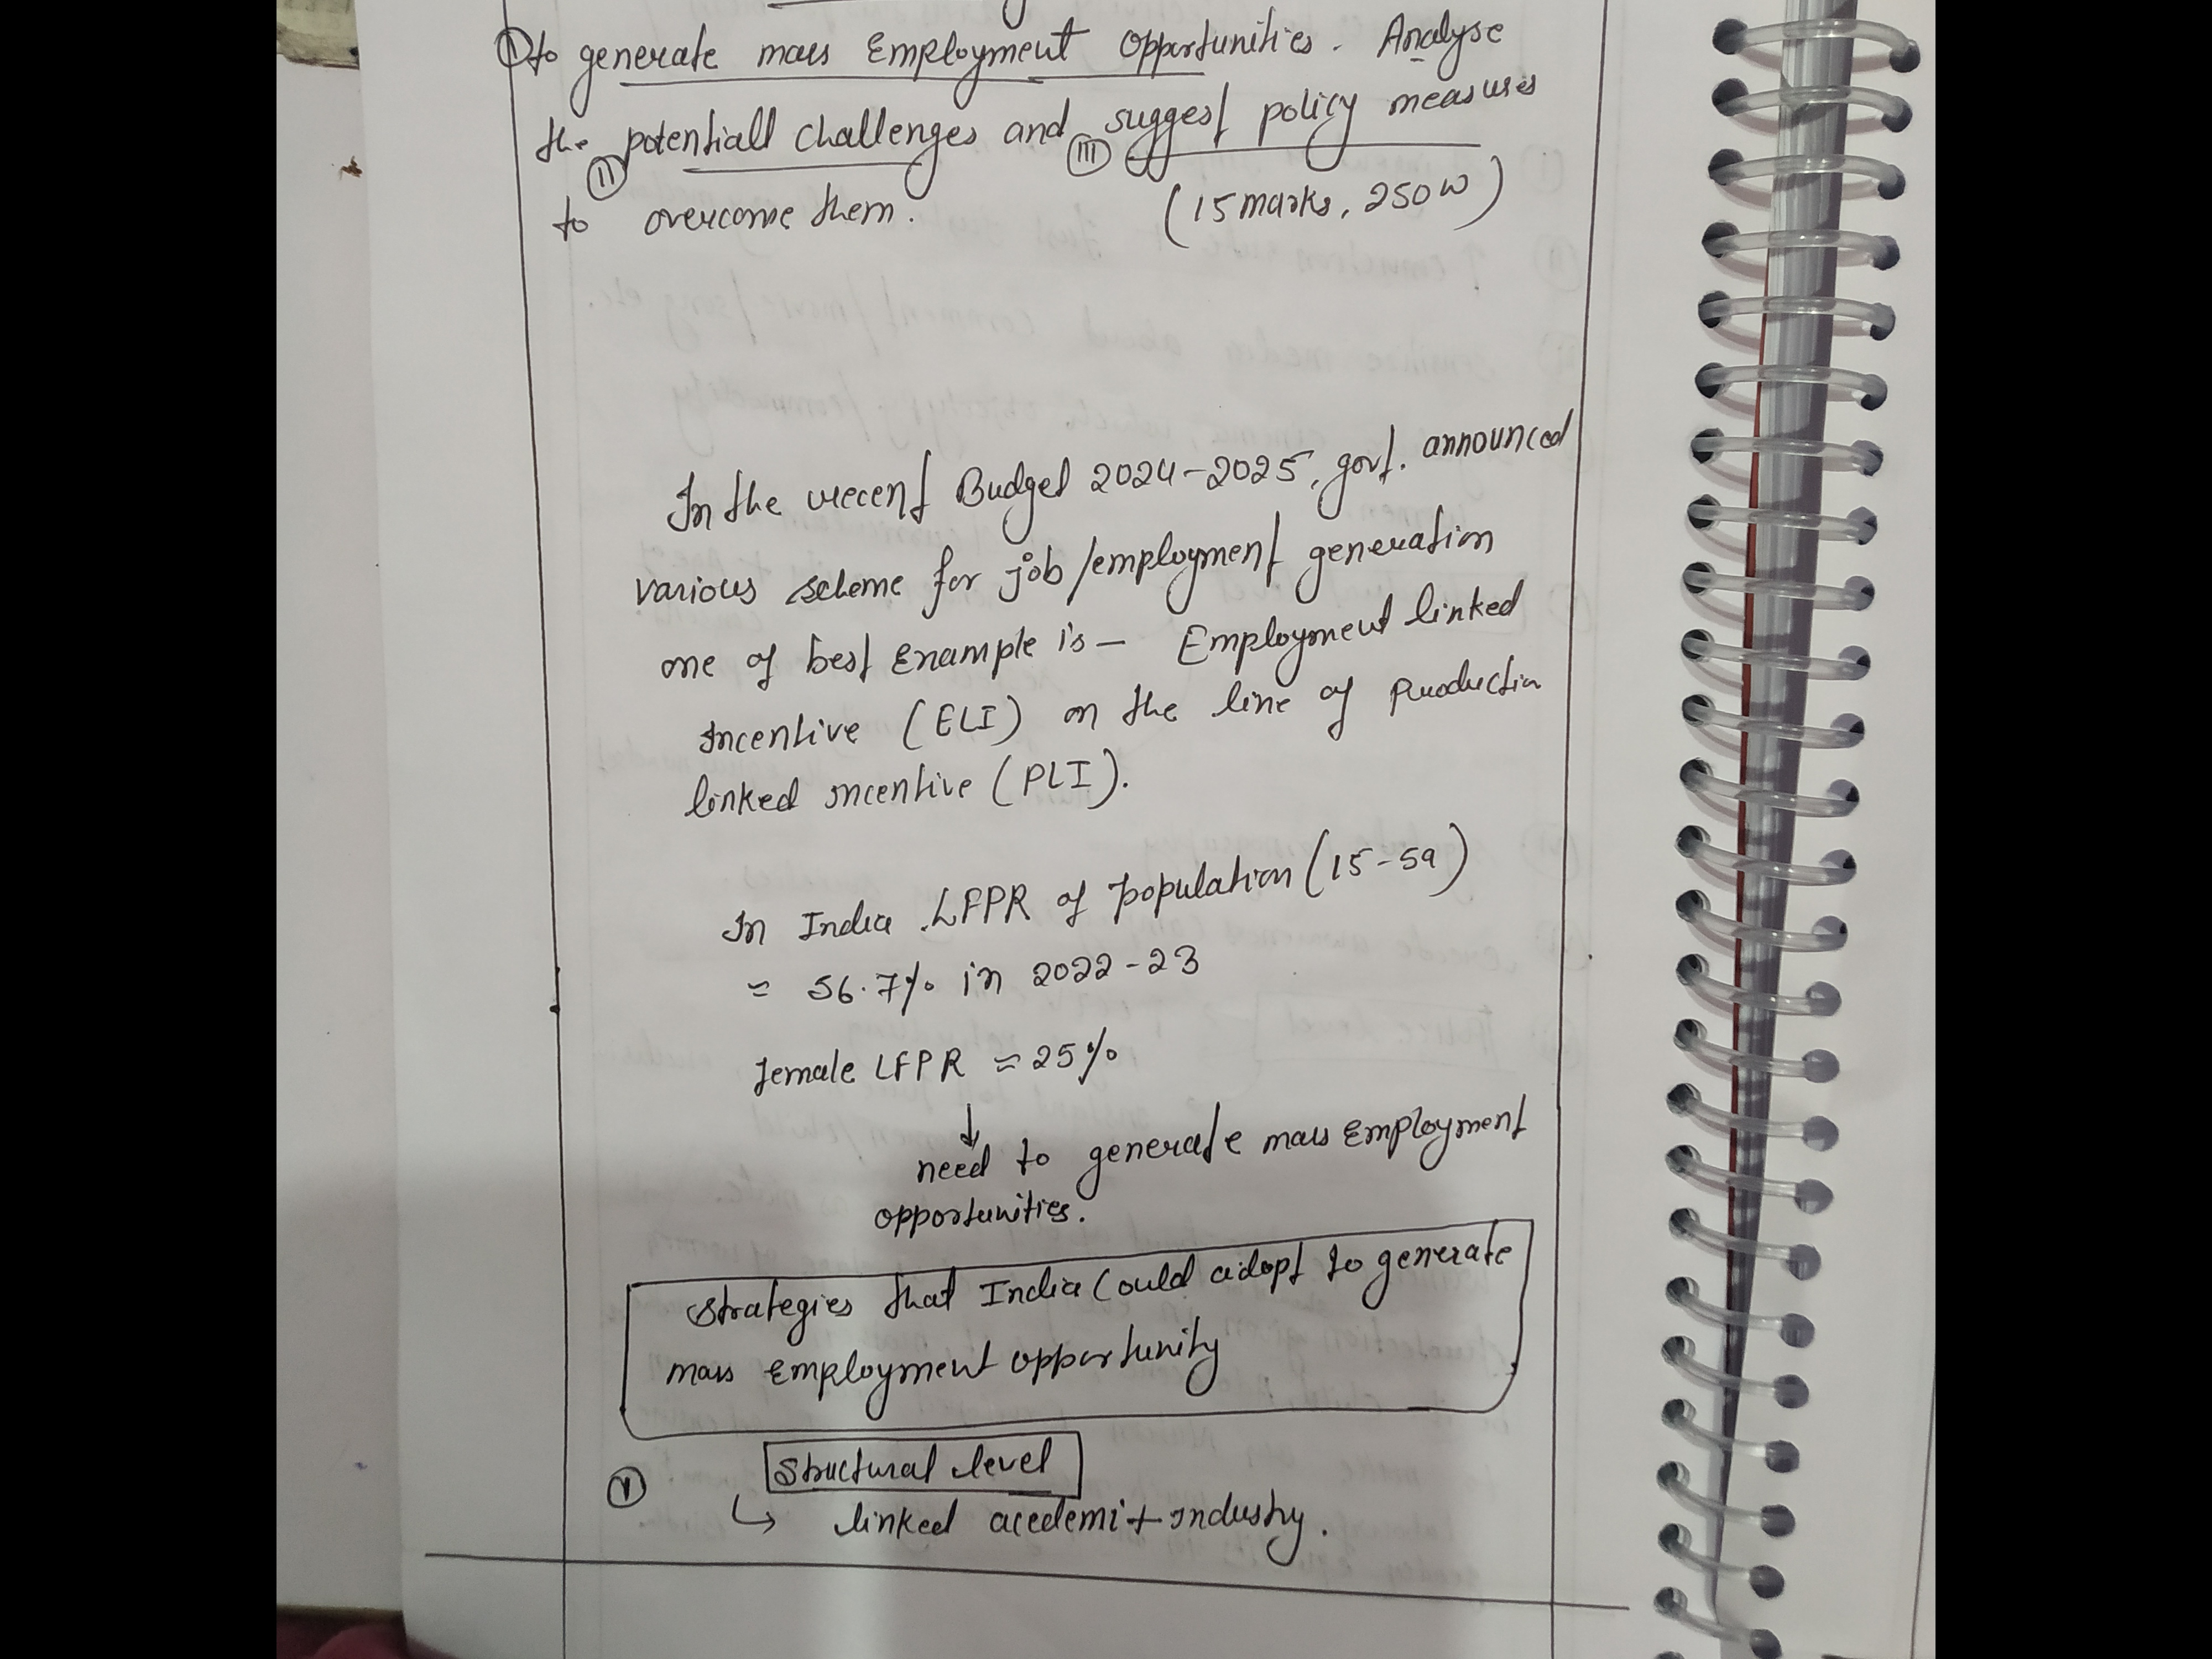 ① to generate mass Employment opportunities. Analyse
the potentiall challenges and suggest policy measures
II III
to overcome them. (15 marks, 250 w)
In the recent Budget 2024-2025, govt. announced
various scheme for job/employment generation
one of best Example is - Employment linked
Incentive (ELI) on the line of Production
linked incentive (PLI).
In India LFPR of population (15-59)
≈ 56.7% in 2022-23
female LFPR ≈ 25%
↓
need to generate mass Employment
opportunities.
Strategies that India Could adopt to generate
mass Employment opportunity
Structural level
↳ linked acedemi + Industry.